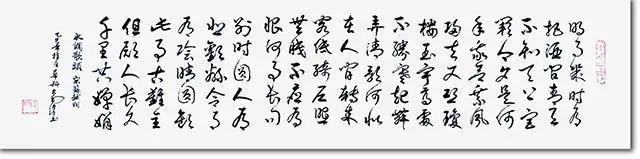 明月幾时有
把酒问青天
不知天上宫
阙今夕是何
年我欲乘風
歸去又恐瓊
楼玉宇高處
不勝寒起舞
弄清影何似
在人间转朱
阁低绮户照
無眠不應有
恨何事长向
别时圆人有
悲歡離合月
有阴晴圆缺
此事古难全
但愿人长久
千里共嬋娟
水调歌頭 宋苏轼词